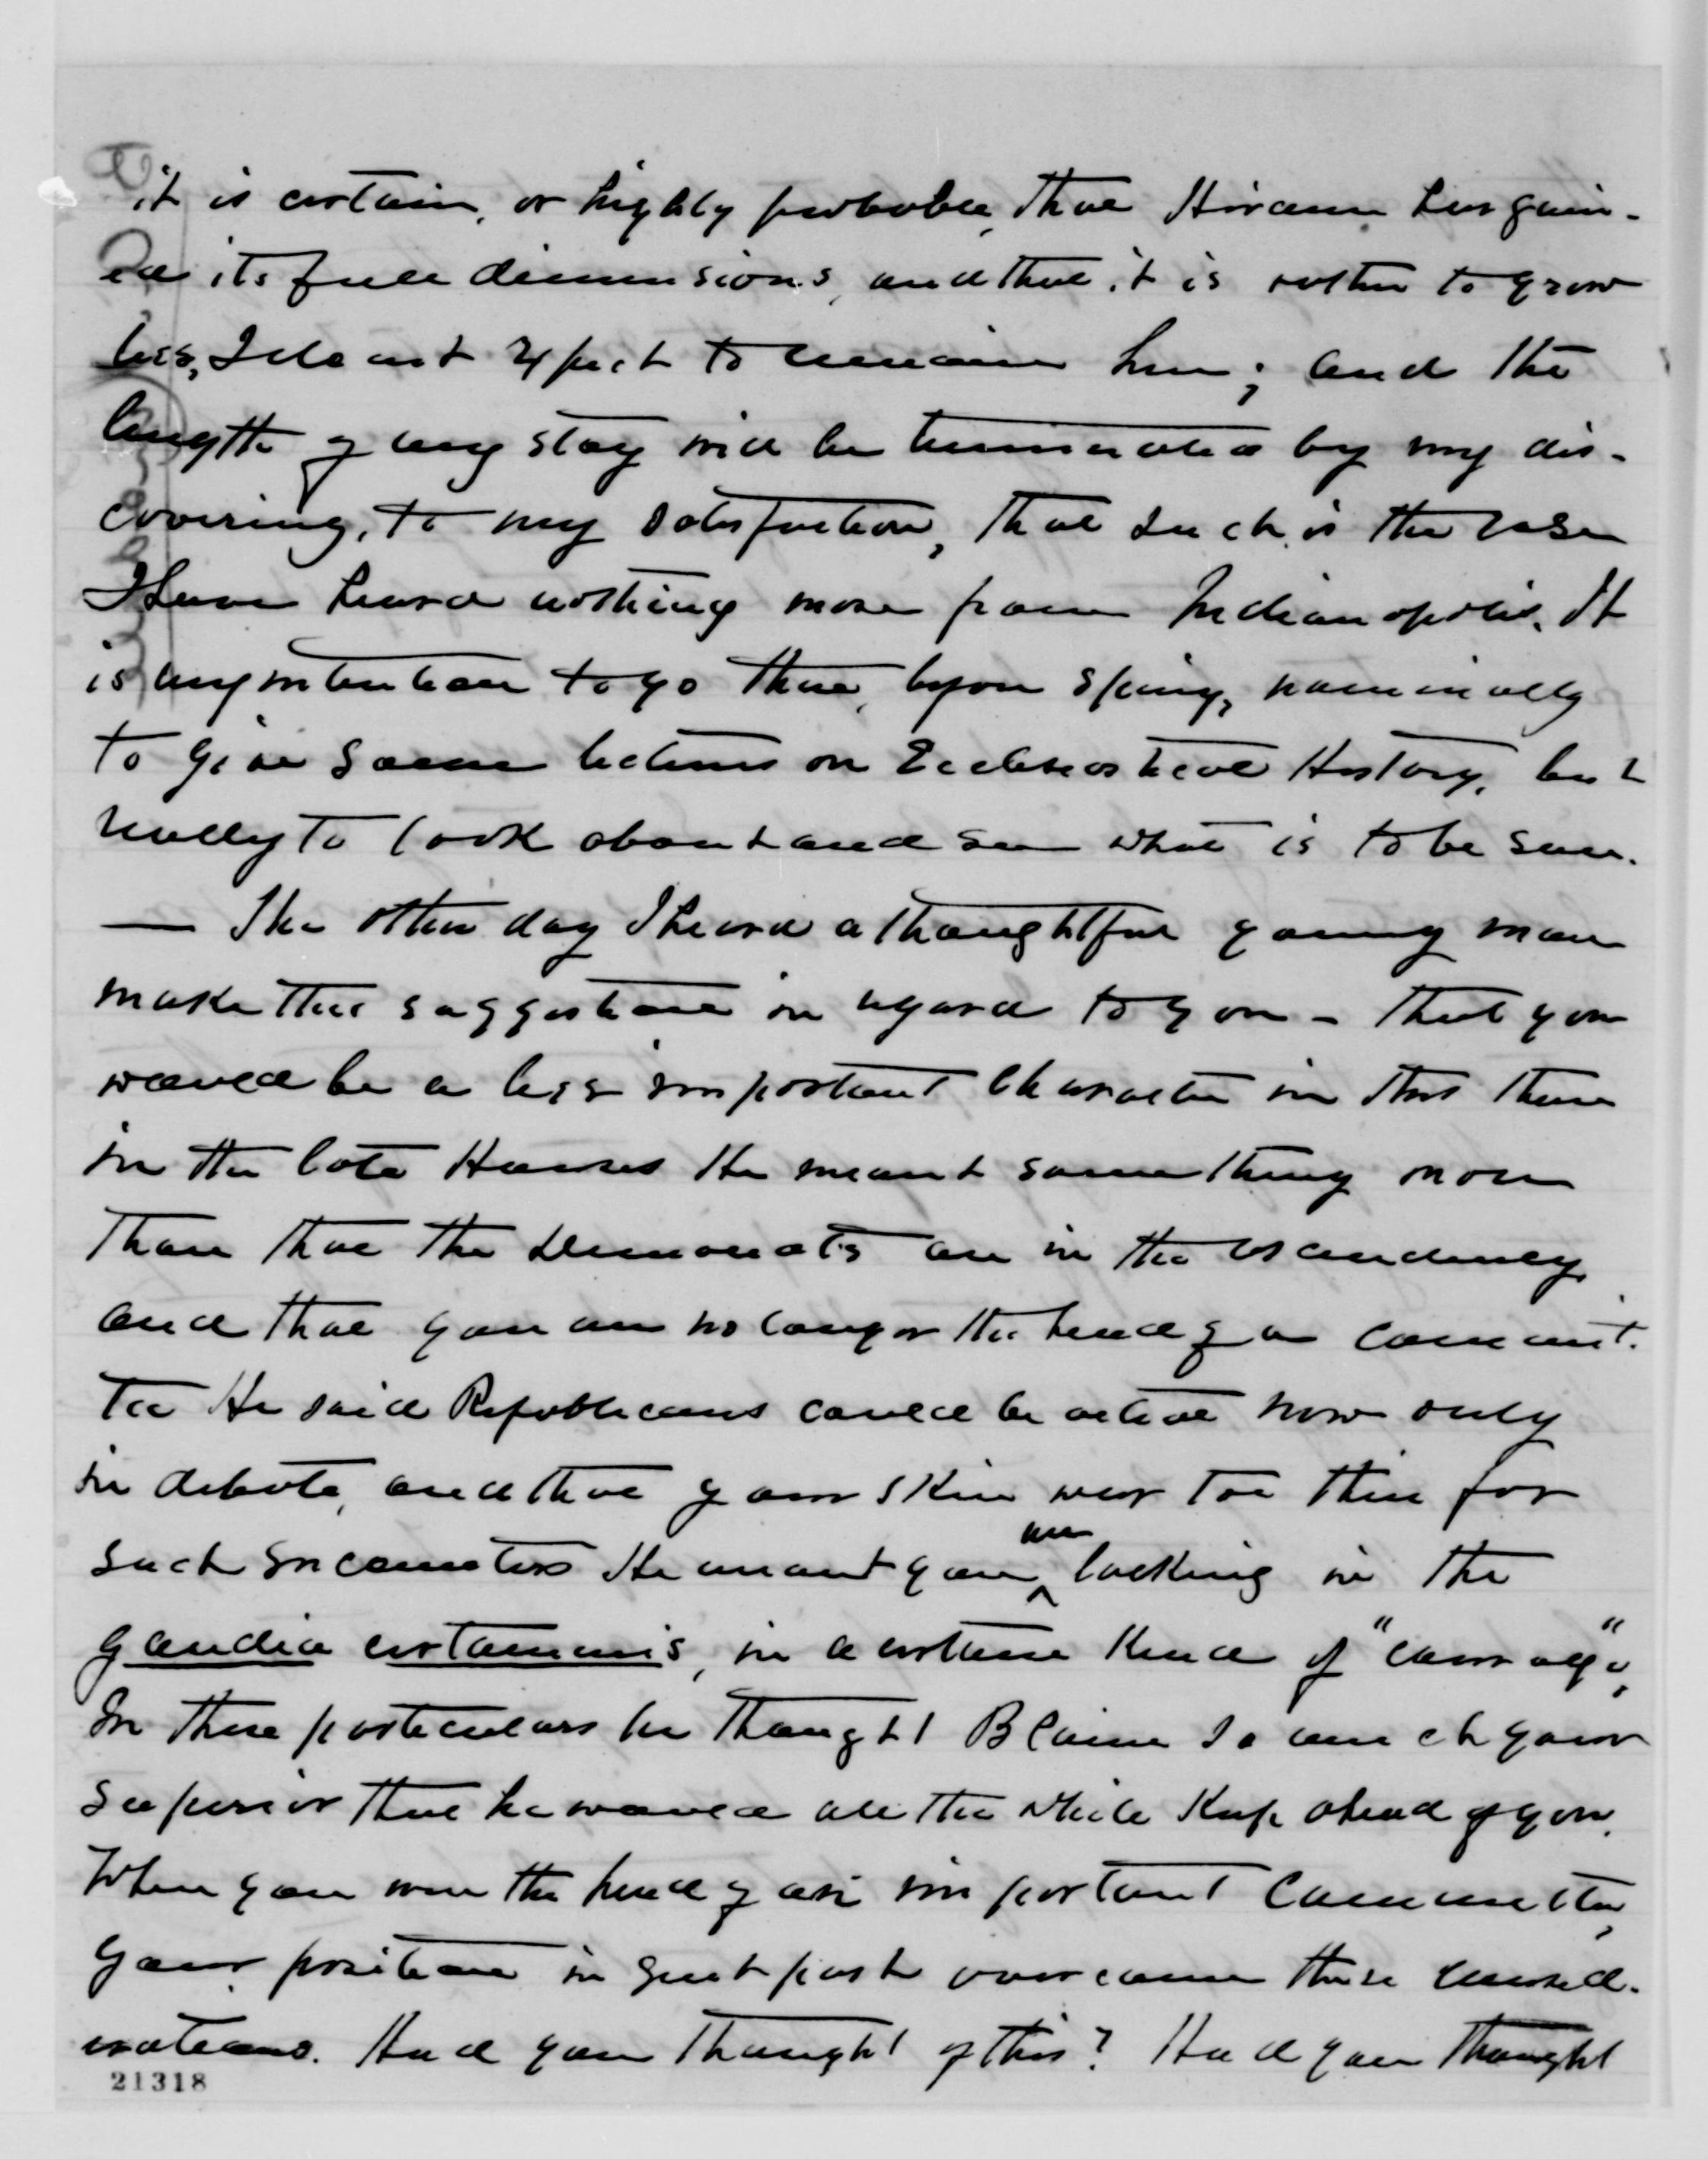 it is certain, or highly probable, that Hiram has gain-
ed its full dimensions, and that it is rather to grow
less, I do not expect to remain here; and the
length of my stay will be terminated by my dis-
covering, to my satisfaction, that such is the case
I have heard nothing more from Indianapolis. It
is my intention to go there, before spring, nominally
to give some lectures on Ecclesiastical History, but
really to look about and see what is to be seen.
— The other day I heard a thoughtful young man
make this suggestion in regard to you - that you
would be a less important character in this than
in the late House. He meant something more
than that the Democrats are in the ascendency,
and that you are no longer the head of a commit-
tee He said Republicans could be active now only
in debate, and that your skin was too thin for
such encounters He meant you are lacking in the
gaudia certaminis, in a certain kind of "courage",
In these particulars he thought Blaine so much your
superior that he would all the while keep ahead of you.
When you were the head of an important Committee,
your position in great part overcame these consid-
erations. Had you thought of this? Had you thought
21318